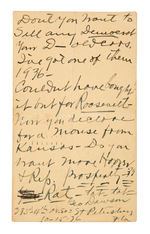 Don't you want to
sell any Democrat
your D— old cars.
I've got one of them
1936—
Couldn't have bought
it but for Roosevelt—
Now you declare
for a mouse from
Kansas— Do you
want more Hoover
& Rep. prosperity
Rat— 
Geo Dawson
St Petersburg
10-15-36 Fla